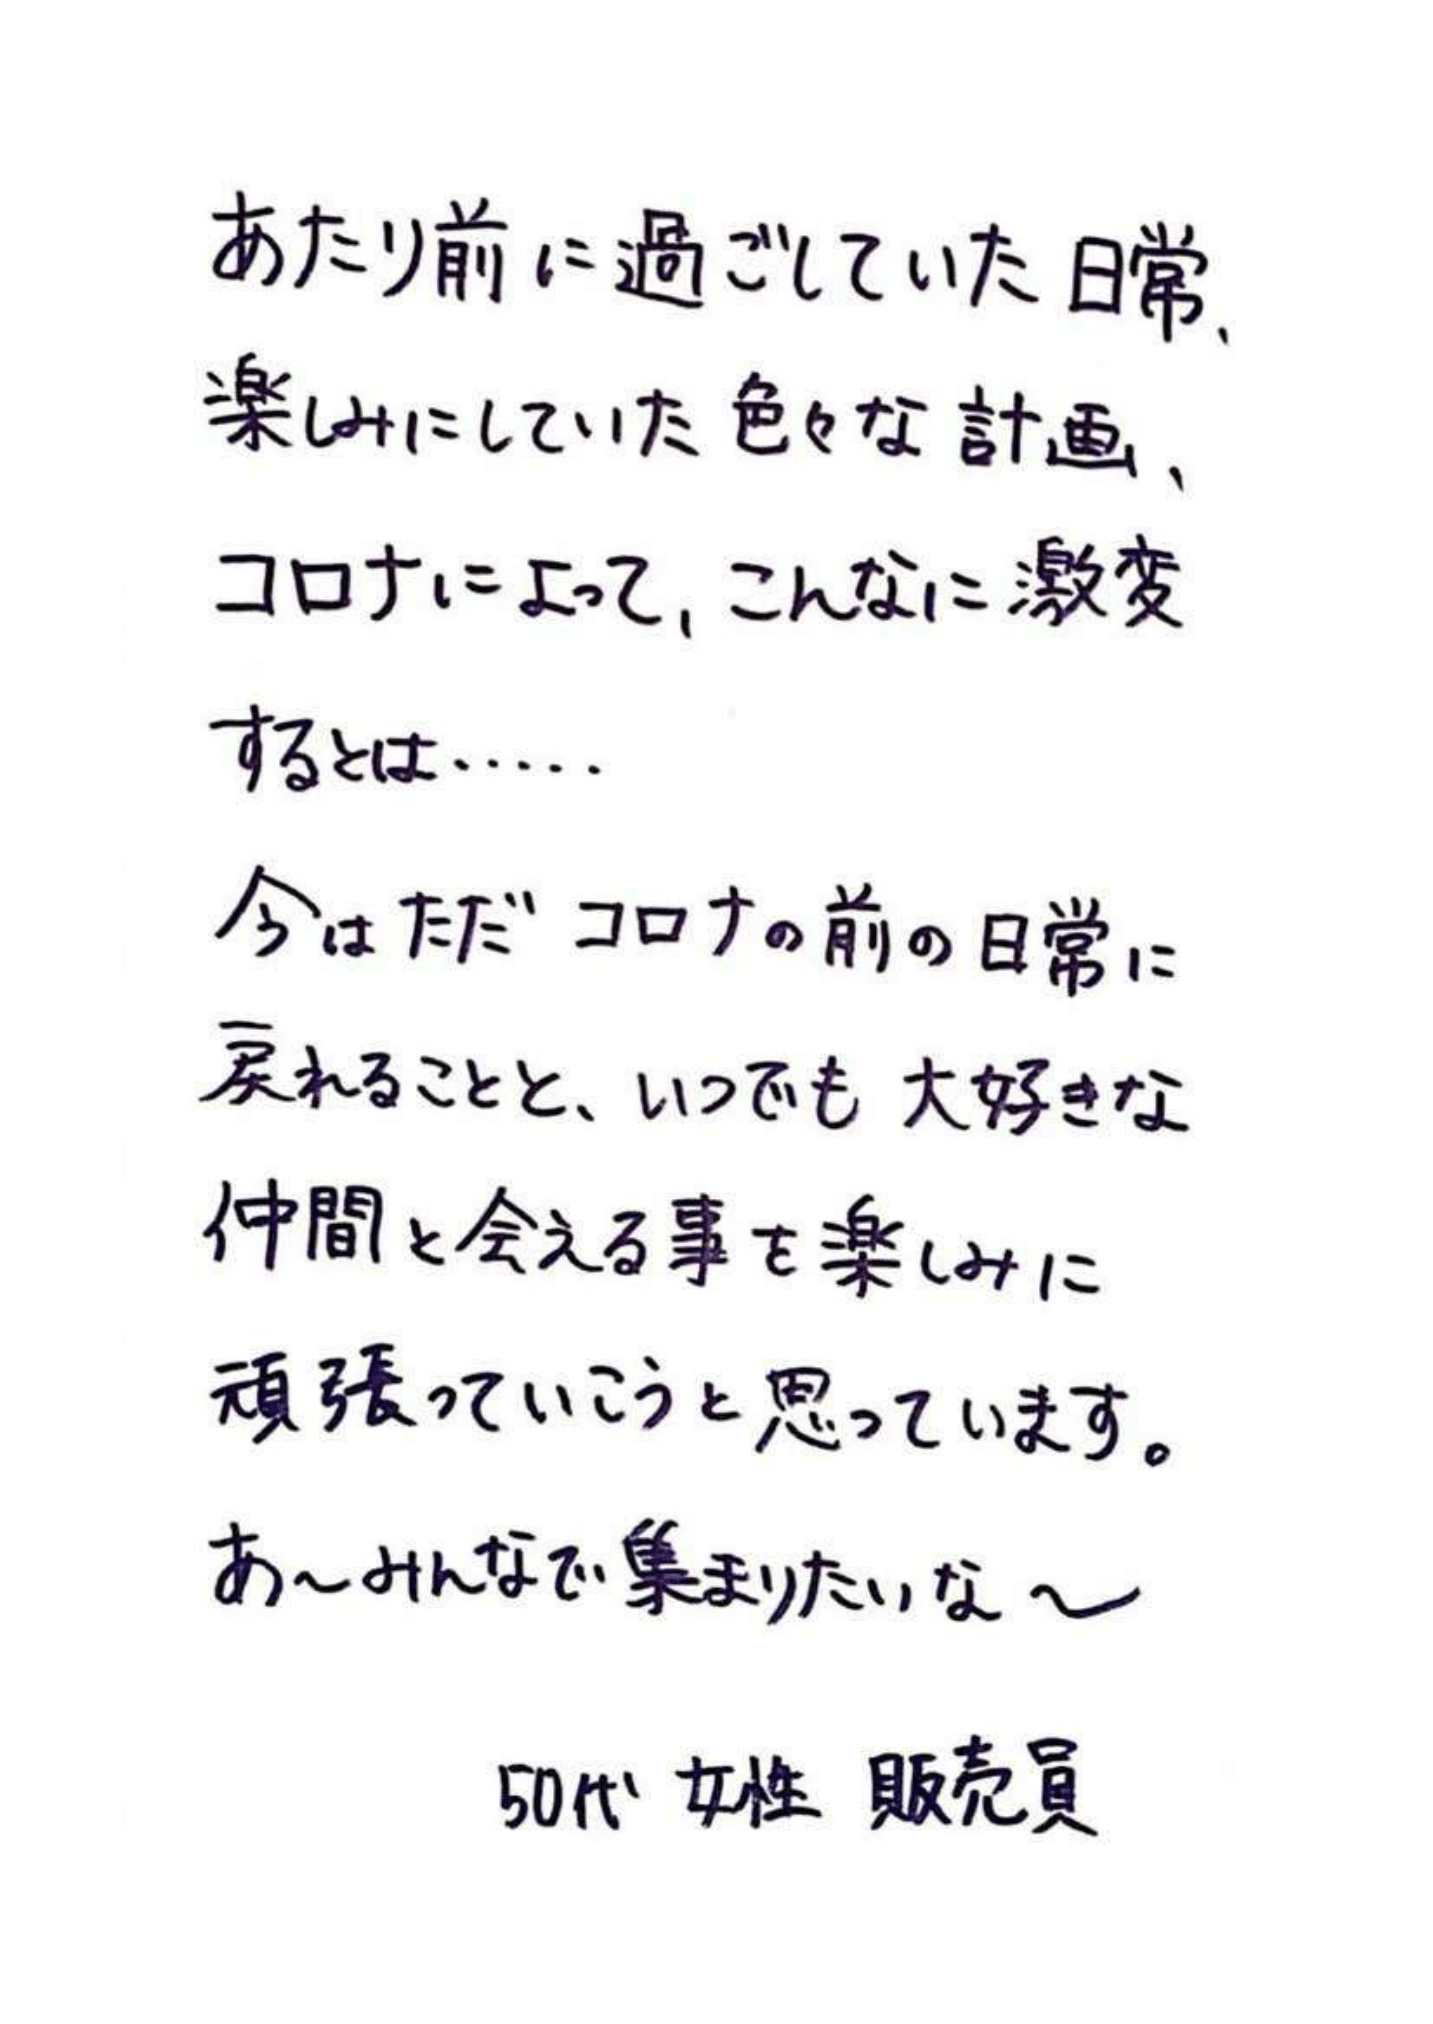 あたり前に過ごしていた日常、
楽しみにしていた色々な計画、
コロナによって、こんなに激変
するとは……
今はただコロナの前の日常に
戻れることと、いつでも大好きな
仲間と会える事を楽しみに
頑張っていこうと思っています。
あ〜みんなで集まりたいな〜
50代 女性 販売員